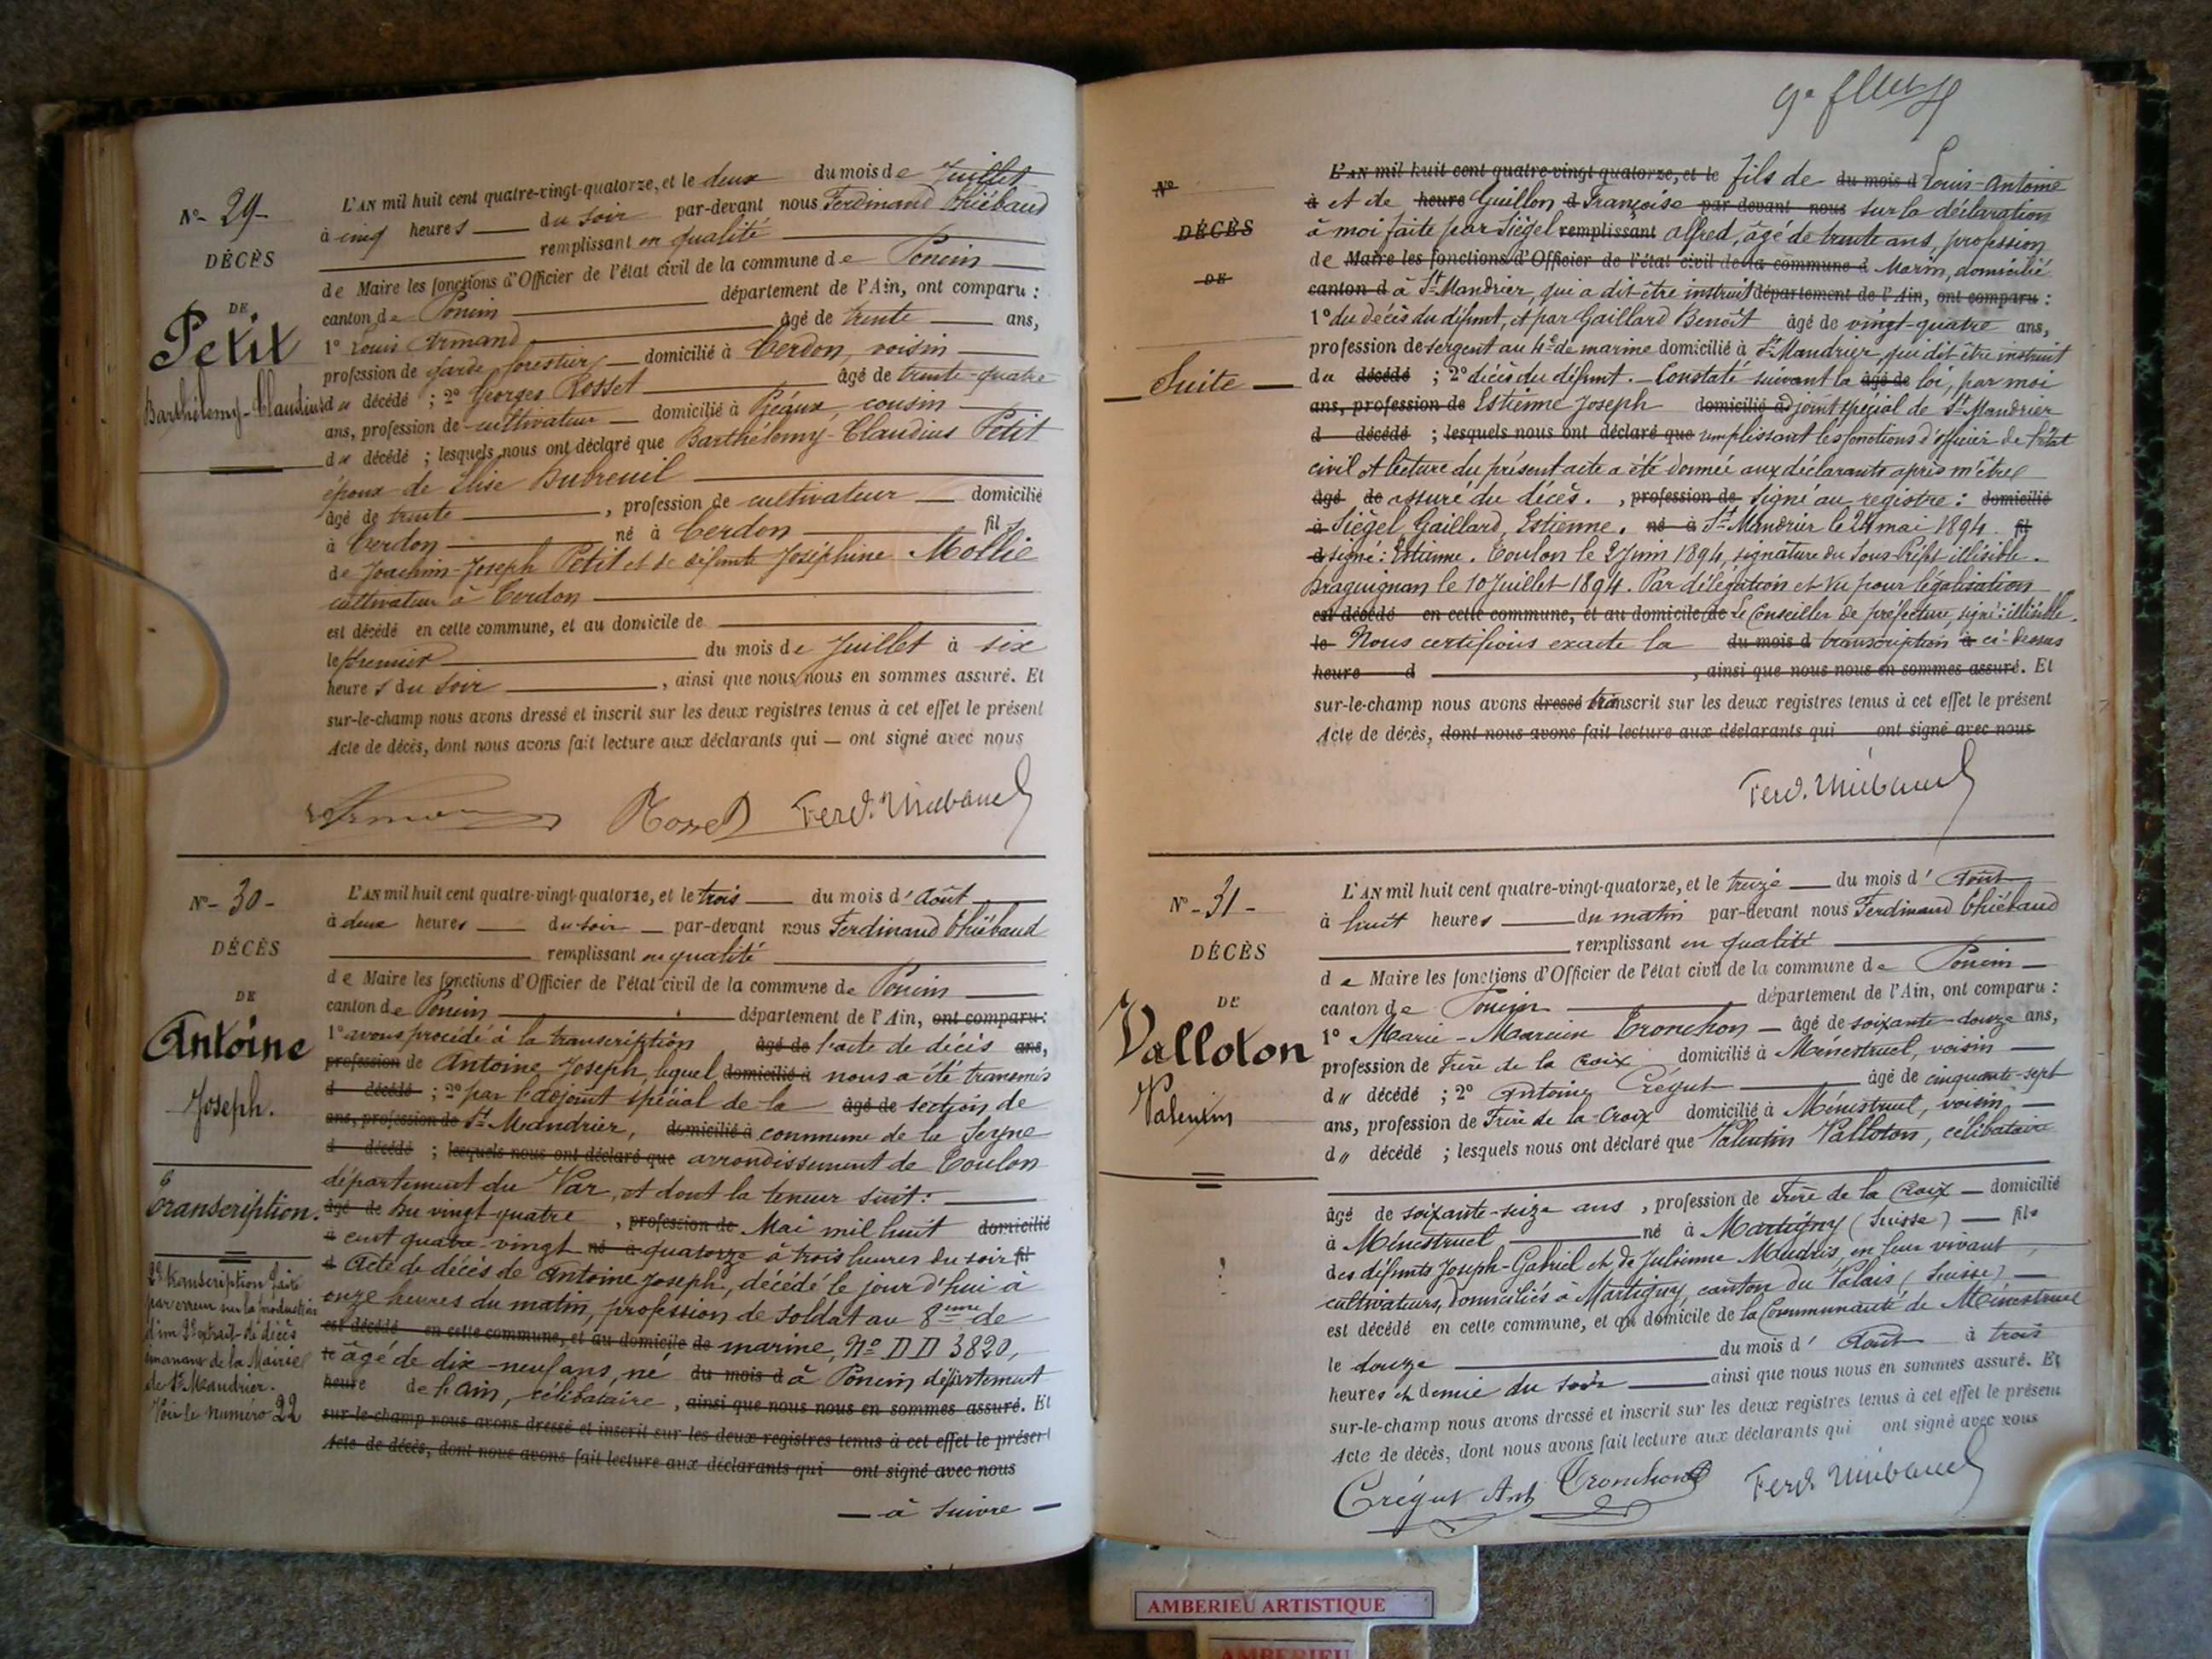 N° - 29 -
DÉCÈS
DE
Petit
Barthélemy-Claudius
L'AN mil huit cent quatre-vingt-quatorze, et le deux du mois de Juillet
à cinq heures du soir par-devant nous Ferdinand Thiébaud
remplissant en qualité
de Maire les fonctions d'Officier de l'état civil de la commune de Poncin
canton de Poncin département de l'Ain, ont comparu :
1° Louis Armand âgé de trente ans,
profession de garde forestier domicilié à Cerdon, voisin
du décédé ; 2° Georges Rosset âgé de trente-quatre
ans, profession de cultivateur domicilié à Préaux, cousin
du décédé ; lesquels nous ont déclaré que Barthélemy-Claudius Petit
époux de Elise Dubreuil
âgé de trente , profession de cultivateur domicilié
à Cerdon né à Cerdon fils
de Joachim-Joseph Petit et de défunte Joséphine Mollie
cultivateur à Cerdon
est décédé en cette commune, et au domicile de
le premier du mois de Juillet à six
heures du soir , ainsi que nous nous en sommes assuré. Et
sur-le-champ nous avons dressé et inscrit sur les deux registres tenus à cet effet le présent
Acte de décès, dont nous avons fait lecture aux déclarants qui — ont signé avec nous
Rosset Ferd. Thiébaud
N° - 30 -
DÉCÈS
DE
Antoine
Joseph.
Transcription.
2e transcription faite
par erreur sur la production
d'un 2e extrait de décès
émanant de la Mairie
de St Mandrier.
Voir le numéro 22
L'AN mil huit cent quatre-vingt-quatorze, et le trois du mois d'Août
à deux heures du soir par-devant nous Ferdinand Thiébaud
remplissant en qualité
de Maire les fonctions d'Officier de l'état civil de la commune de Poncin
canton de Poncin département de l'Ain, ont comparu :
1° avons procédé à la transcription âgé de l'acte de décès ans,
profession de Antoine Joseph, lequel domicilié à nous a été transmis
d décédé ; 2° par l'adjoint spécial de la âgé de section de
ans, profession de St Mandrier, domicilié à commune de la Seyne
d décédé ; lesquels nous ont déclaré que arrondissement de Toulon
département du Var, et dont la teneur suit :
âgé de Du vingt-quatre , profession de Mai mil huit domicilié
à cent quatre-vingt né à quatorze à trois heures du soir fil
d Acte de décès de Antoine Joseph, décédé le jour d'hui à
onze heures du matin, profession de soldat au 8eme de
est décédé en cette commune, et au domicile de marine, N° DD 3820,
le âgé de dix-neuf ans, né du mois d à Poncin département
heure de l'Ain, célibataire , ainsi que nous nous en sommes assuré. Et
sur-le-champ nous avons dressé et inscrit sur les deux registres tenus à cet effet le présent
Acte de décès, dont nous avons fait lecture aux déclarants qui ont signé avec nous
— à suivre —
N°
DÉCÈS
DE
Suite
L'AN mil huit cent quatre-vingt-quatorze, et le fils de du mois d Louis-Antoine
à et de heure Guillon d Françoise par-devant nous sur la déclaration
à moi faite par Siégel remplissant Alfred, âgé de trente ans, profession
de Maire les fonctions d'Officier de l'état civil de la commune d Marin, domicilié
canton d à St Mandrier, qui a dit être instruit département de l'Ain, ont comparu :
1° du décès du défunt, et par Gaillard Benoît âgé de vingt-quatre ans,
profession de sergent au 4e de marine domicilié à St Mandrier qui dit être instruit
du décédé ; 2° décès du défunt. - Constaté suivant la âgé de loi, par moi
ans, profession de Estienne Joseph domicilié adjoint spécial de St Mandrier
d décédé ; lesquels nous ont déclaré que remplissant les fonctions d'officier de l'état
civil et lecture du présent acte a été donnée aux déclarants après m'être
âgé de assuré du décès. , profession de Signé au registre : domicilié
à Siégel, Gaillard, Estienne. né à St Mandrier le 24 mai 1894 fil
d signé : Estienne. Toulon le 2 Juin 1894, signature du Sous-Préfet illisible.
Draguignan le 10 Juillet 1894. Par délégation et Vu pour légalisation
est décédé en cette commune, et au domicile de Le Conseiller de préfecture, signé : illisible.
le Nous certifions exacte la du mois d transcription à ci-dessus
heure d , ainsi que nous nous en sommes assuré. Et
sur-le-champ nous avons dressé transcrit sur les deux registres tenus à cet effet le présent
Acte de décès, dont nous avons fait lecture aux déclarants qui ont signé avec nous
Ferd. Thiébaud
N° - 31 -
DÉCÈS
DE
Valloton
Valentin
L'AN mil huit cent quatre-vingt-quatorze, et le treize du mois d'Août
à huit heures du matin par-devant nous Ferdinand Thiébaud
remplissant en qualité
de Maire les fonctions d'Officier de l'état civil de la commune de Poncin
canton de Poncin département de l'Ain, ont comparu :
1° Marie- Tronchon — âgé de soixante-douze ans,
profession de Frère de la Croix domicilié à Ménestruel, voisin
d" décédé ; 2° Antoine Crégut âgé de cinquante-sept
ans, profession de Frère de la Croix domicilié à Ménestruel, voisin,
d" décédé ; lesquels nous ont déclaré que Valentin Valloton, célibataire
âgé de soixante-seize ans , profession de Frère de la Croix — domicilié
à Ménestruel né à Martigny (Suisse) — fils
des défunts Joseph-Gabriel et de Julienne en leur vivant
cultivateurs, domiciliés à Martigny, canton du Valais (Suisse) —
est décédé en cette commune, et au domicile de la Communauté de Ménestruel
le douze du mois d'Août à trois
heures et demie du soir ainsi que nous nous en sommes assuré. Et
sur-le-champ nous avons dressé et inscrit sur les deux registres tenus à cet effet le présent
Acte de décès, dont nous avons fait lecture aux déclarants qui ont signé avec nous
Crégut Ant Tronchon Ferd. Thiébaud
AMBERIEU ARTISTIQUE
AMBERIEU